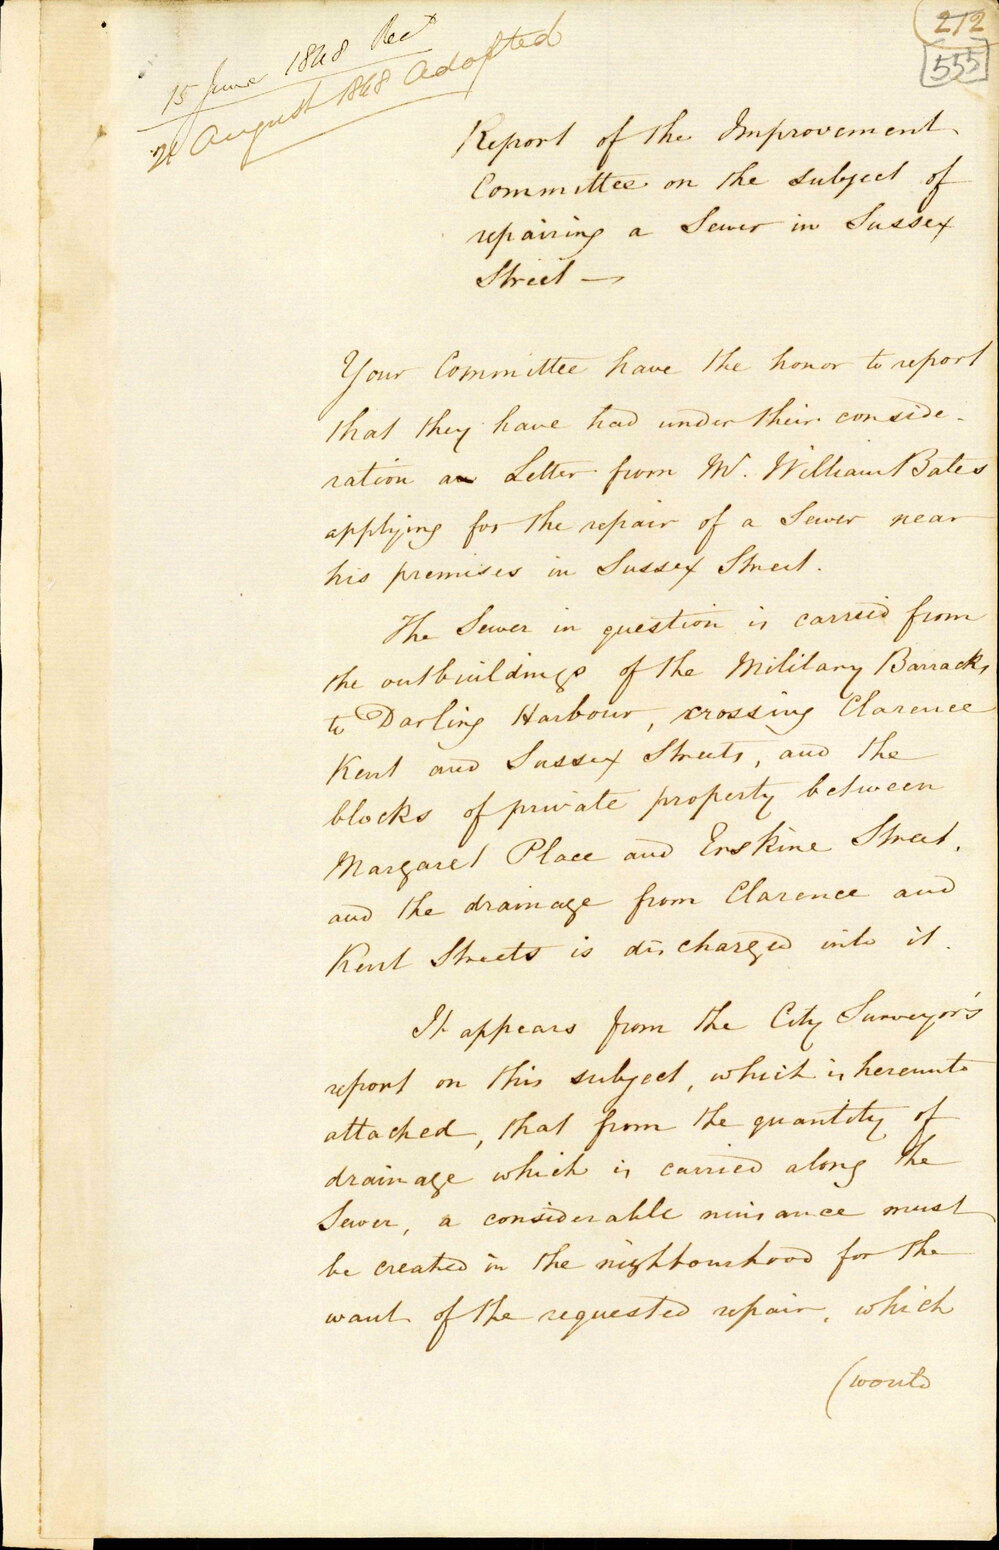 212
555
15 June 1848 Recd
21 August 1848 Adopted
Report of the Improvement
Committee on the subject of
repairing a Sewer in Sussex
Street —
Your Committee have the honor to report
that they have had under their conside-
ration a Letter from Mr. William Bates
applying for the repair of a Sewer near
his premises in Sussex Street.
The Sewer in question is carried from
the outbuildings of the Military Barracks
to Darling Harbour, crossing Clarence
Kent and Sussex Streets, and the
blocks of private property between
Margaret Place and Erskine Street,
and the drainage from Clarence and
Kent Streets is discharged into it.
It appears from the City Surveyor's
report on this subject, which is hereunto
attached, that from the quantity of
drainage which is carried along the
Sewer, a considerable nuisance must
be created in the nighbourhood for the
want of the requested repair, which
(would